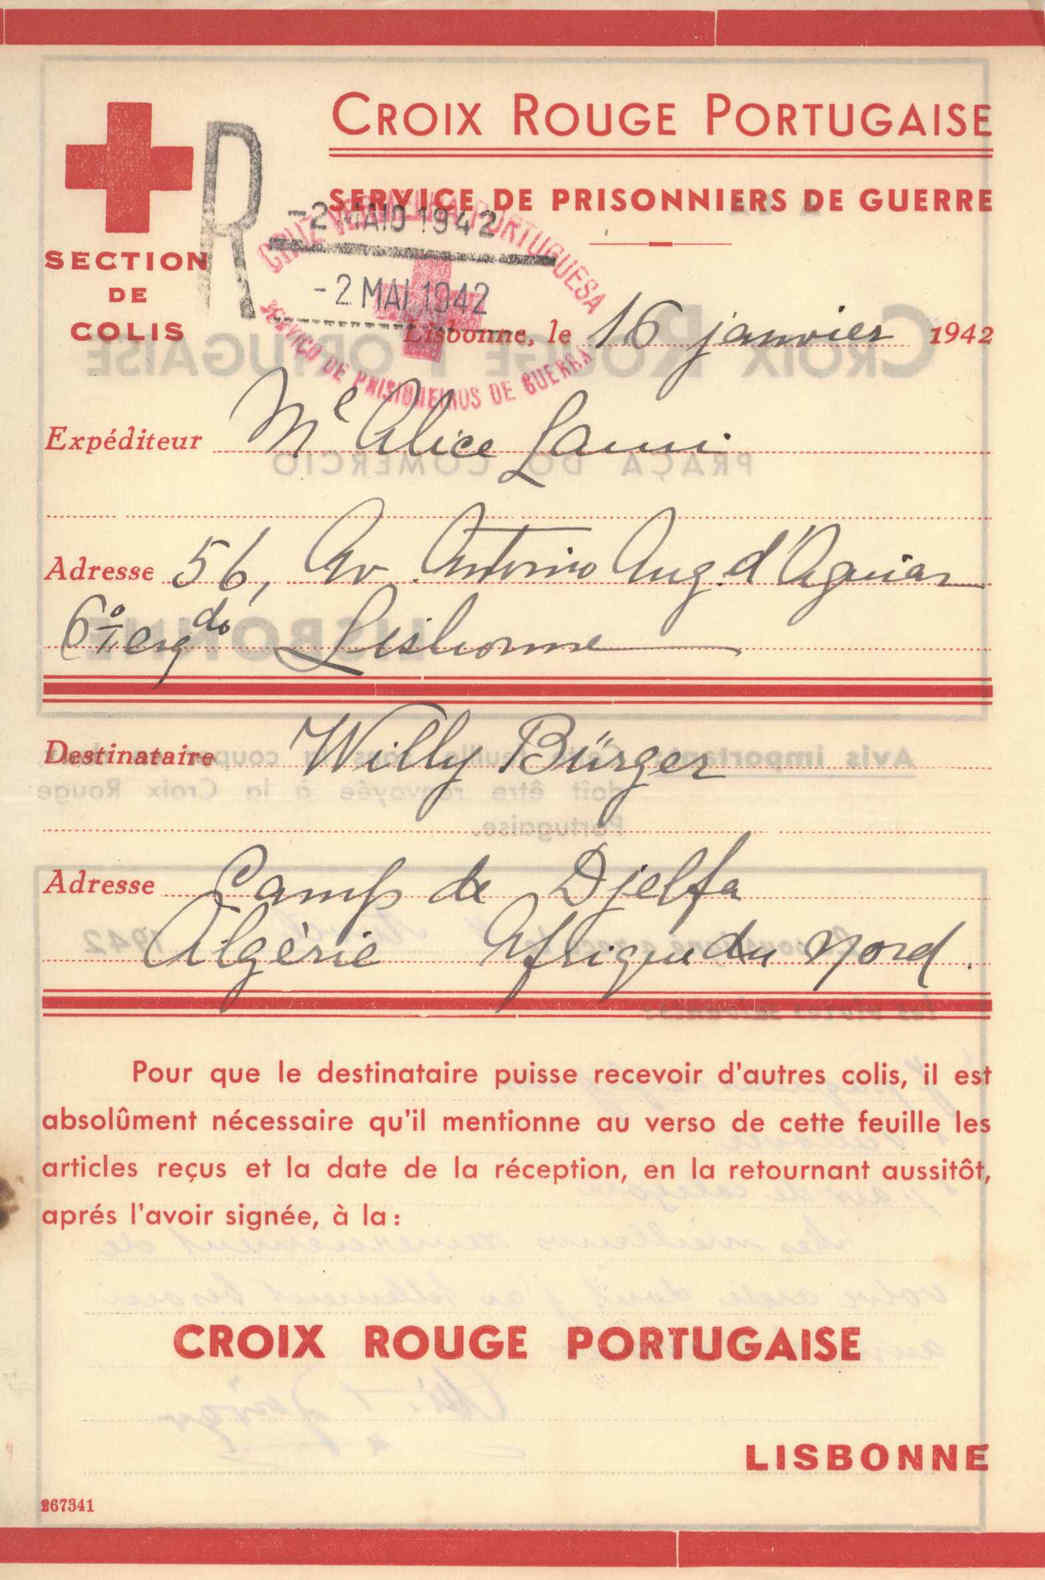 CROIX ROUGE PORTUGAISE
SERVICE DE PRISONNIERS DE GUERRE
SECTION
DE
COLIS
R
-2 MAIO 1942
-2 MAI 1942
CRUZ VERMELHA PORTUGUESA
SERVIÇO DE PRISIONEIROS DE GUERRA
Lisbonne, le 16 janvier 1942
Expéditeur Me Alice Launi
Adresse 56, Av. Antonio Aug. d'Aguiar
6º esqdo Lisbonne
Destinataire Willy Bürger
Adresse Camp de Djelfa
Algérie Afrique du Nord.
Pour que le destinataire puisse recevoir d'autres colis, il est
absolûment nécessaire qu'il mentionne au verso de cette feuille les
articles reçus et la date de la réception, en la retournant aussitôt,
aprés l'avoir signée, à la:
CROIX ROUGE PORTUGAISE
LISBONNE
267341